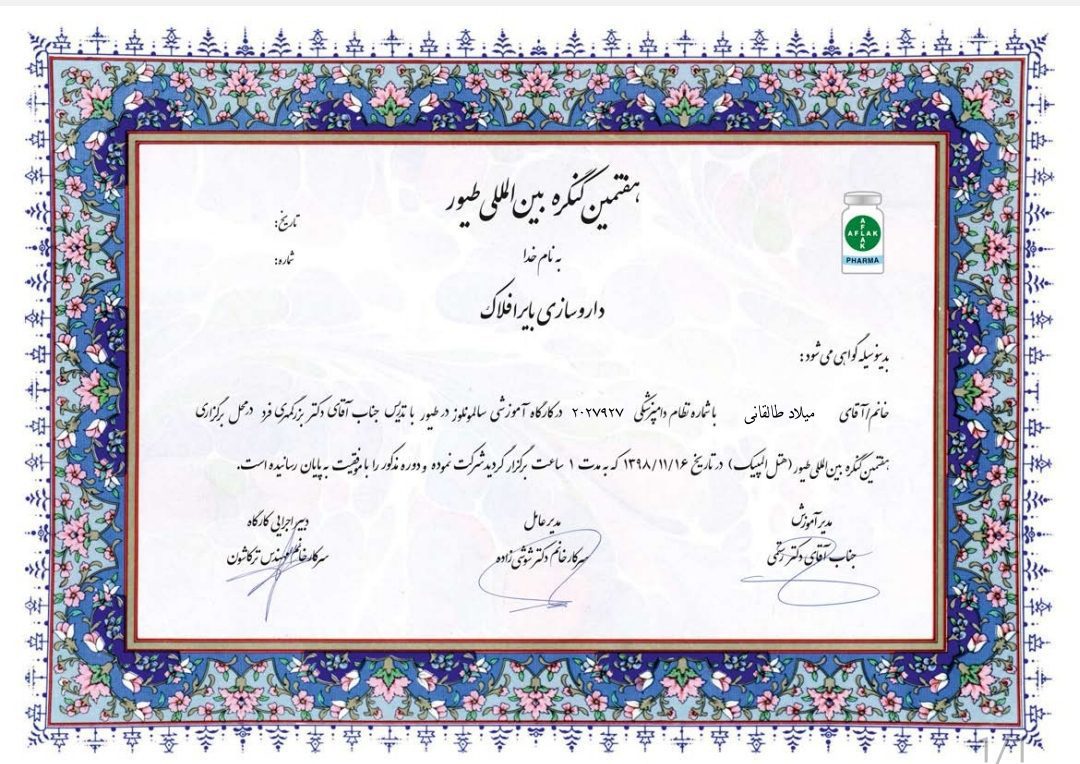 هفتمین کنگره بین المللی طیور
تاریخ:
به نام خدا
شماره:
داروسازی بایر افلاک
AFLAK
AFLAK
PHARMA
بدینوسیله گواهی می شود:
خانم/آقای میلاد طالقانی با شماره نظام دامپزشکی ۲۰۲۷۹۲۷ در کارگاه آموزشی سالمونلوز در طیور با تدریس جناب آقای دکتر بزرگمهری فرد در محل برگزاری
هفتمین کنگره بین المللی طیور (هتل المپیک) در تاریخ ۱۳۹۸/۱۱/۱۶ که به مدت ۱ ساعت برگزار گردید شرکت نموده و دوره مذکور را با موفقیت به پایان رسانیده است.
مدیر آموزش
جناب آقای دکتر رستمی
مدیر عامل
سرکار خانم دکتر شوشی زاده
دبیر اجرایی کارگاه
سرکار خانم مهندس ترکاشون
1/1